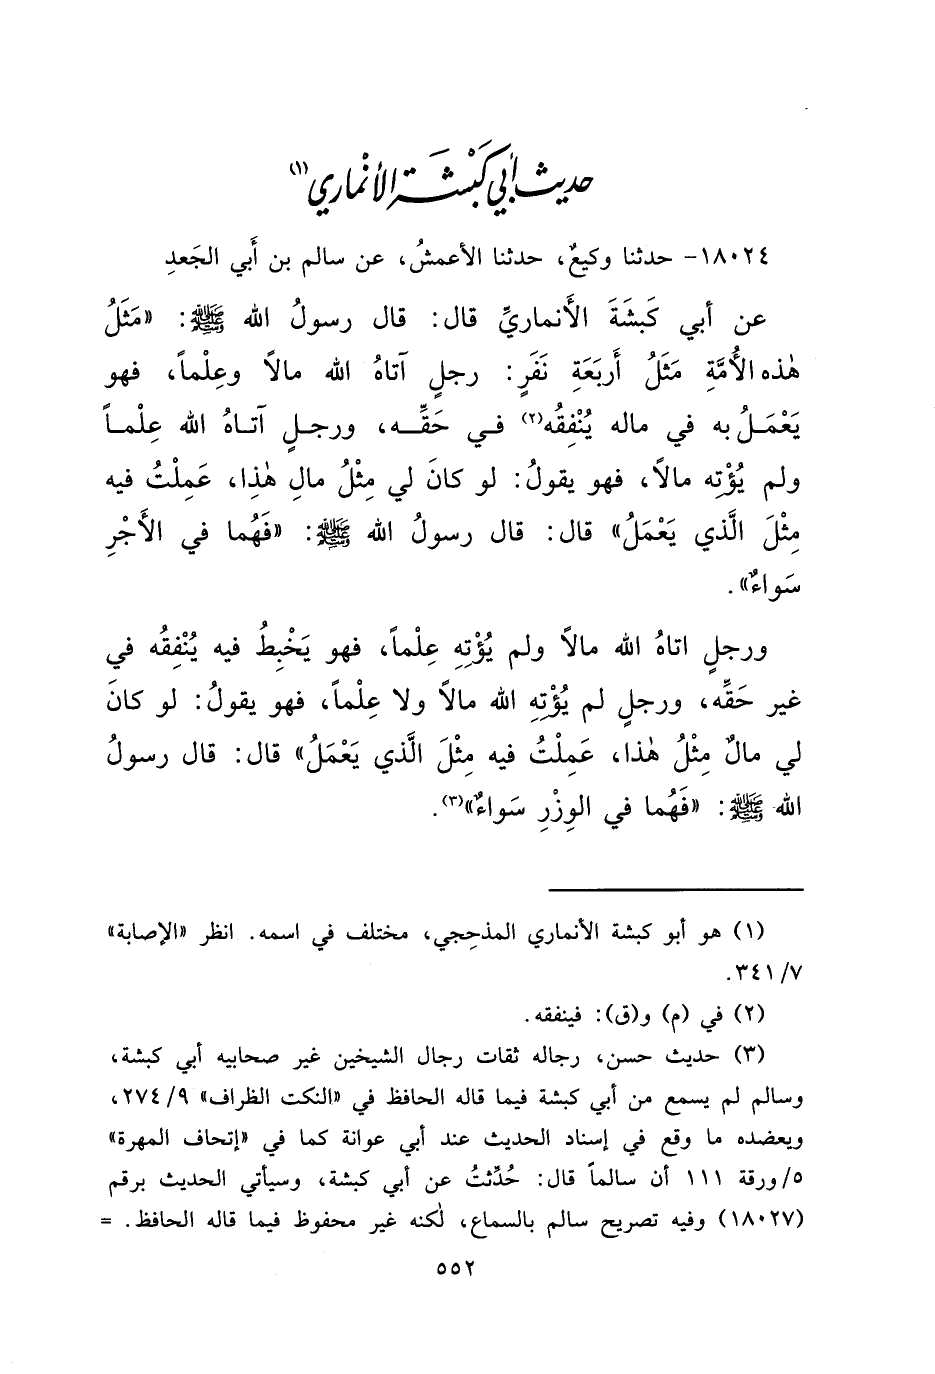 حديث أبي كَبْشَة الأنْماري(١)
١٨٠٢٤- حدثنا وكيعٌ، حدثنا الأعمشُ، عن سالم بن أَبي الجَعدِ
عن أبي كَبشَةَ الأَنماريِّ قال: قال رسولُ الله ﷺ: «مَثَلُ
هٰذه الأُمَّةِ مَثَلُ أَربَعَةِ نَفَرٍ: رجلٍ آتاهُ الله مالاً وعِلْماً، فهو
يَعْمَلُ به في ماله يُنْفِقُه(٢) في حَقِّه، ورجلٍ آتاهُ الله عِلْماً
ولم يُؤْتِه مالاً، فهو يقولُ: لو كانَ لي مِثْلُ مالِ هٰذِا، عَمِلْتُ فيه
مِثْلَ الَّذي يَعْمَلُ» قال: قال رسولُ الله ﷺ: «فَهُما في الأَجْرِ
سَواءٌ».
ورجلٍ اتاهُ الله مالاً ولم يُؤْتِهِ عِلْماً، فهو يَخْبِطُ فيه يُنْفِقُه في
غير حَقِّه، ورجلٍ لم يُؤْتِهِ الله مالاً ولا عِلْماً، فهو يقولُ: لو كانَ
لي مالٌ مِثْلُ هٰذا، عَمِلْتُ فيه مِثْلَ الَّذي يَعْمَلُ» قال: قال رسولُ
الله ﷺ: «فَهُما في الوِزْرِ سَواءٌ»(٣).
(١) هو أبو كبشة الأنماري المذحِجي، مختلف في اسمه. انظر «الإصابة»
٣٤١/٧.
(٢) في (م) و(ق): فينفقه.
(٣) حديث حسن، رجاله ثقات رجال الشيخين غير صحابيه أبي كبشة،
وسالم لم يسمع من أبي كبشة فيما قاله الحافظ في «النكت الظراف» ٢٧٤/٩،
ويعضده ما وقع في إسناد الحديث عند أبي عوانة كما في «إتحاف المهرة»
٥/ورقة ١١١ أن سالماً قال: حُدِّثتُ عن أبي كبشة، وسيأتي الحديث برقم
(١٨٠٢٧) وفيه تصريح سالم بالسماع، لٰكنه غير محفوظ فيما قاله الحافظ. =
٥٥٢